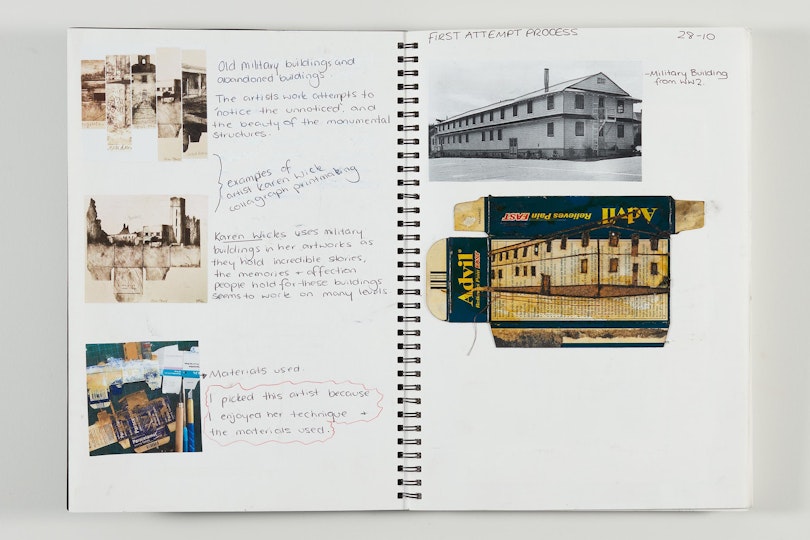 Old military buildings and
abandoned buildings.
The artists work attempts to
'notice the unnoticed', and
the beauty of the monumental
structures.
examples of
artist Karen Wick
collagraph printmaking
Karen Wicks uses military
buildings in her artworks as
they hold incredible stories,
the memories + affection
people hold for these buildings
seems to work on many levels
Materials used.
I picked this artist because
I enjoyed her technique +
the materials used.
FIRST ATTEMPT PROCESS
28-10
-Military Building
from WW2.
Advil
Relieves Pain FAST
Advil
Relieves Pain FAST